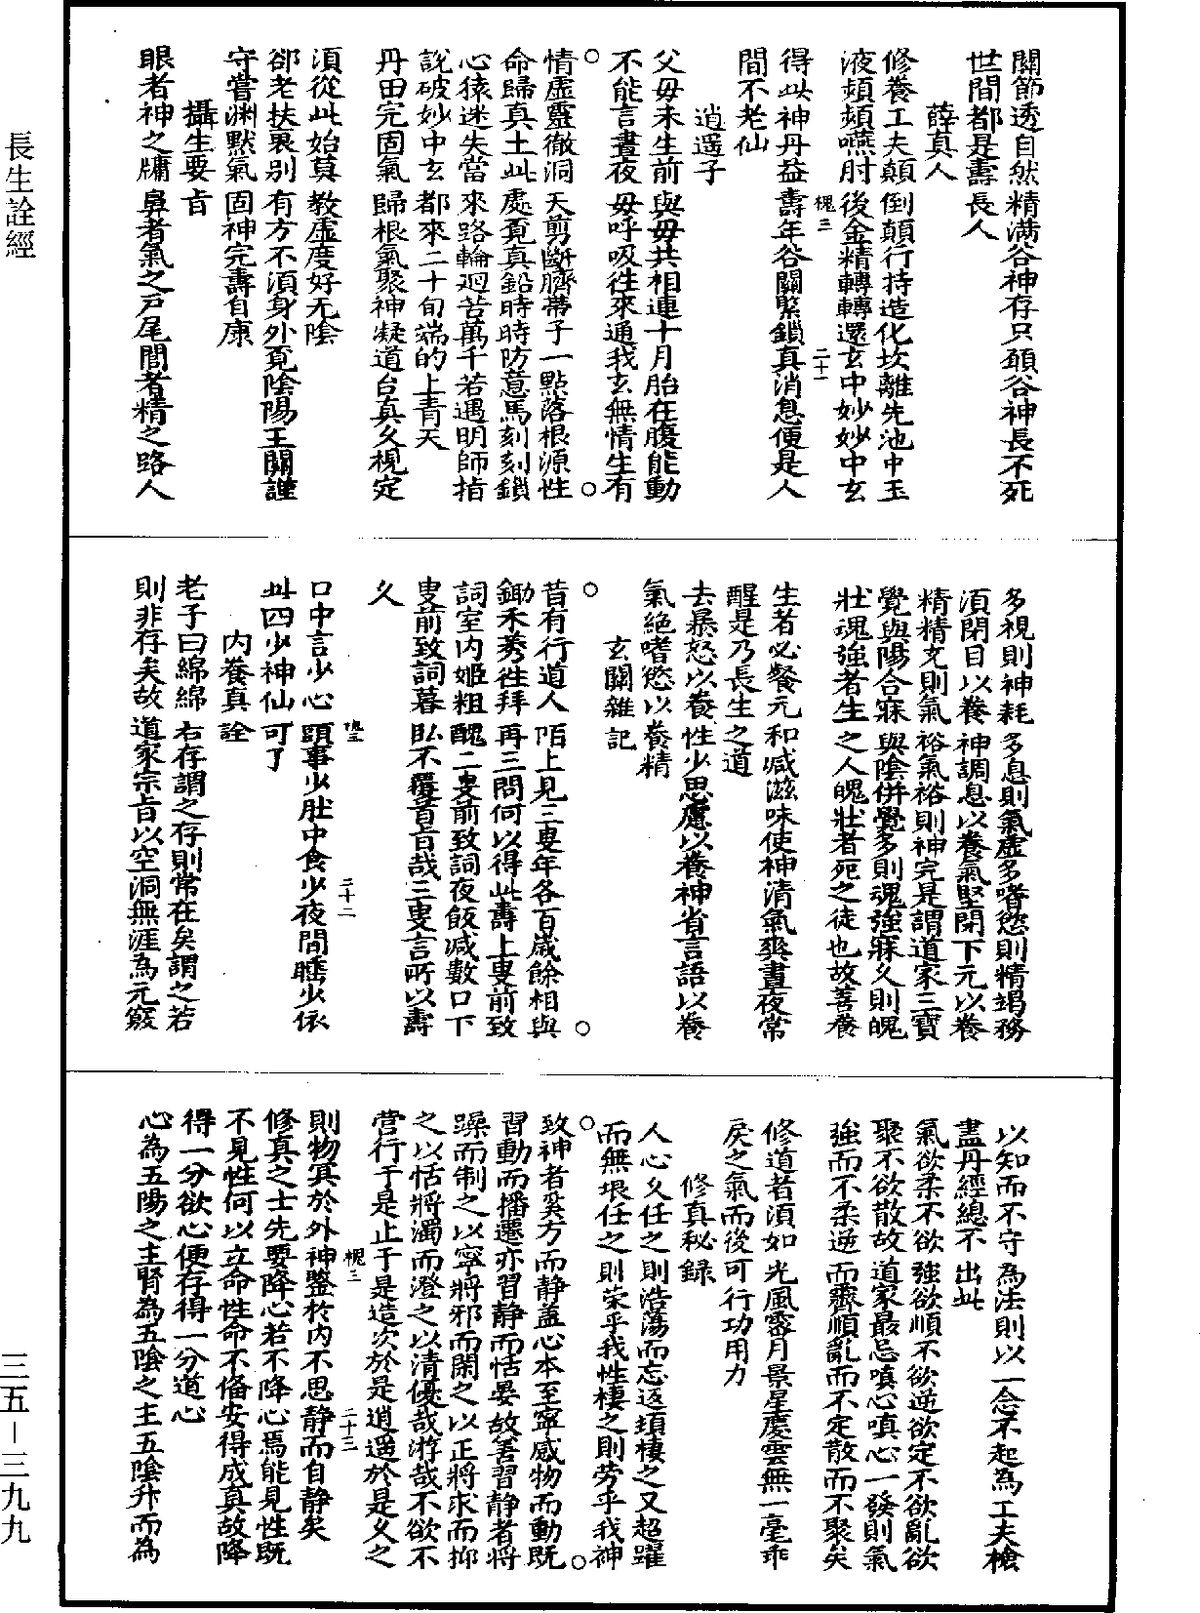 關節透自然精滿谷神存只願谷神長不死
世間都是壽長人
薛真人
修養工夫顛倒顛行持造化坎離先池中玉
液頻頻嚥肘後金精轉轉還玄中妙妙中玄
槐三
二十一
得此神丹益壽年谷關緊鎖真消息便是人
間不老仙
逍遥子
父母未生前與母共相連十月胎在腹能動
不能言晝夜母呼吸往來通我玄無情生有
○
○
情虛靈徹洞天剪斷臍帶子一點落根源性
命歸真土此處覓真鉛時時防意馬刻刻鎖
心猿迷失當來路輪廻苦萬千若遇明師指
說破妙中玄都來二十旬端的上青天
丹田完固氣歸根氣聚神凝道台真久視定
須從此始莫教虛度好无陰
卻老扶衰別有方不須身外覓陰陽玉關謹
守嘗渊默氣固神完壽自康
攝生要旨
眼者神之牖鼻者氣之戸尾閭者精之路人
多視則神耗多息則氣虛多嗜慾則精竭務
須閉目以養神調息以養氣堅閉下元以養
精精充則氣裕氣裕則神完是謂道家三寶
覺與陽合寐與陰併覺多則魂強寐久則魄
壯魂強者生之人魄壯者死之徒也故善養
生者必餐元和減滋味使神清氣爽晝夜常
醒是乃長生之道
去暴怒以養性少思慮以養神省言語以養
氣絕嗜慾以養精
玄關雜記
○
○
昔有行道人陌上見三叟年各百歲餘相與
鋤禾莠往拜再三問何以得此壽上叟前致
詞室内姬粗醜二叟前致詞夜飯減數口下
叟前致詞暮臥不覆首旨哉三叟言所以壽
久
槐三
二十二
口中言少心頭事少肚中食少夜間睡少依
此四少神仙可了
内養真詮
老子曰綿綿右存謂之存則常在矣謂之若
則非存矣故道家宗旨以空洞無涯為元竅
以知而不守為法則以一念不起為工夫檢
盡丹經總不出此
氣欲柔不欲強欲順不欲逆欲定不欲亂欲
聚不欲散故道家最忌嗔心嗔心一發則氣
強而不柔逆而不順亂而不定散而不聚矣
修道者須如光風霽月景星慶雲無一毫乖
戾之氣而後可行功用力
修真秘録
人心久任之則浩蕩而忘返頓棲之又超躍
而無垠任之則荣乎我性棲之則劳乎我神
○
○
致神者奚方而静盖心本至寧感物而動既
習動而播遷亦習静而恬晏故善習静者將
躁而制之以寧將邪而閑之以正將求而抑
之以恬將濁而澄之以清優哉游哉不欲不
营行于是止于是造次於是逍遥於是久之
槐三
二十三
則物冥於外神鑒於内不思静而自静矣
修真之士先要降心若不降心焉能見性既
不見性何以立命性命不俻安得成真故降
得一分欲心便存得一分道心
心為五陽之主腎為五陰之主五陰升而為
長生詮經
三五－三九九